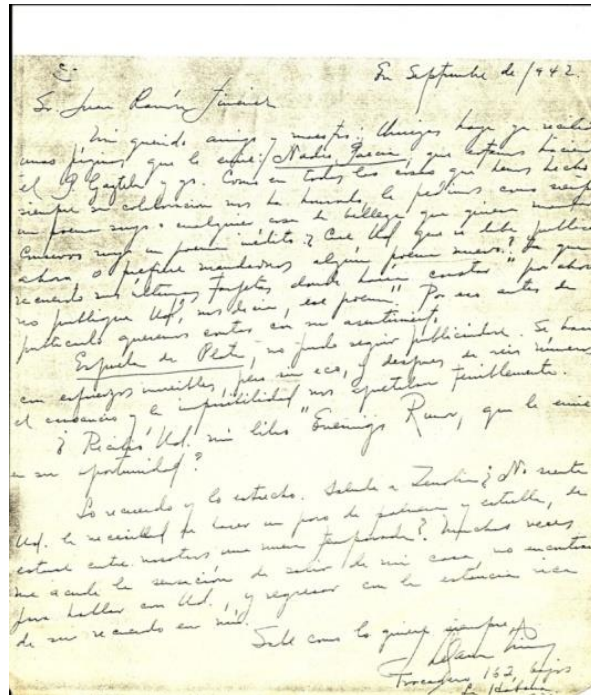 En Septiembre de 1942.
Sr. Juan Ramón Jiménez
Mi querido amigo y maestro: habrá ya recibido
unas páginas que le envié: Nadie Parecía, que estamos haciendo
el P. Gaztelu y yo. Como en todas las cosas que hemos hecho
siempre su colaboración nos ha honrado, le pedimos como siempre
un poema suyo o cualquier cosa de belleza que quiera
suyo un poema inédito ¿Cree Ud. que se debe publicar
ahora o prefiere mandarnos algún poema nuevo? Ya que
recuerdo sus últimas tarjetas donde hacía constar "por ahora
no publique Ud., nos decía, ese poema". Por eso antes de
publicarlo queremos contar con su asentimiento.
Espuela de Plata, no pudo seguir publicándose. Se hacía
con esfuerzos increíbles, pero sin eco, y después de seis números
el cansancio y la imposibilidad nos apretaban terriblemente.
¿Recibió Ud. mi libro "Enemigo Rumor, que le envié
en su oportunidad?
Lo recuerdo y lo estrecho. Salude a Zenobia ¿No siente
Ud. la necesidad de hacer un poco de palmera y estrella, de
estarse entre nosotros una nueva temporada? Muchas veces
me acude la sensación de salir de mi casa no encontrar
para hablar con Ud., y regresar con la estancia rica
de su recuerdo en mí.
Sabe como lo quiere siempre,
Lezama Lima
Trocadero 162, bajos
La Habana